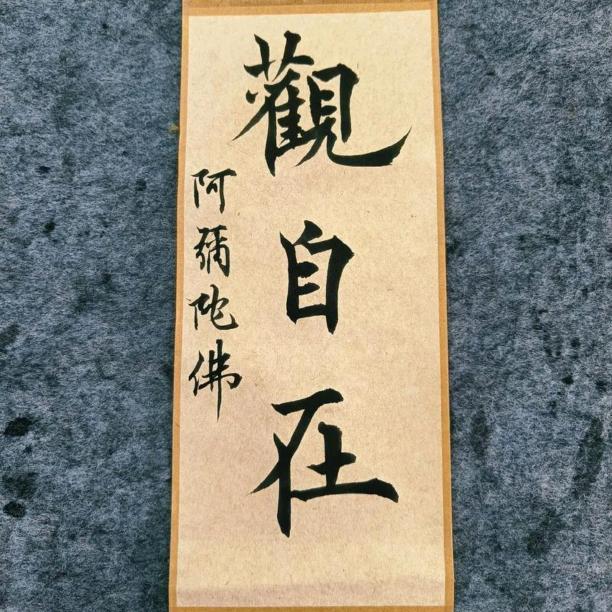 觀自在
阿彌陀佛